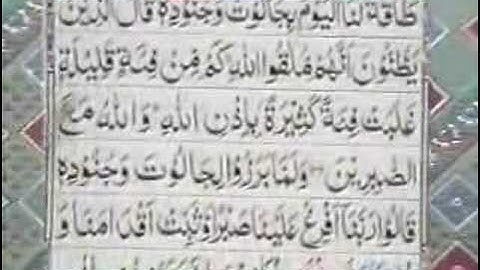 طَاقَةَ لَنَا الْيَوْمَ بِجَالُوْتَ وَجُنُوْدِهٖ قَالَ الَّذِيْنَ
يَظُنُّوْنَ اَنَّهُمْ مُّلٰقُوا اللّٰهِ كَمْ مِّنْ فِئَةٍ قَلِيْلَةٍ
غَلَبَتْ فِئَةً كَثِيْرَةً بِاِذْنِ اللّٰهِ وَاللّٰهُ مَعَ
الصّٰبِرِيْنَ وَلَمَّا بَرَزُوْا لِجَالُوْتَ وَجُنُوْدِهٖ
قَالُوْا رَبَّنَا اَفْرِغْ عَلَيْنَا صَبْرًا وَّثَبِّتْ اَقْدَامَنَا وَ